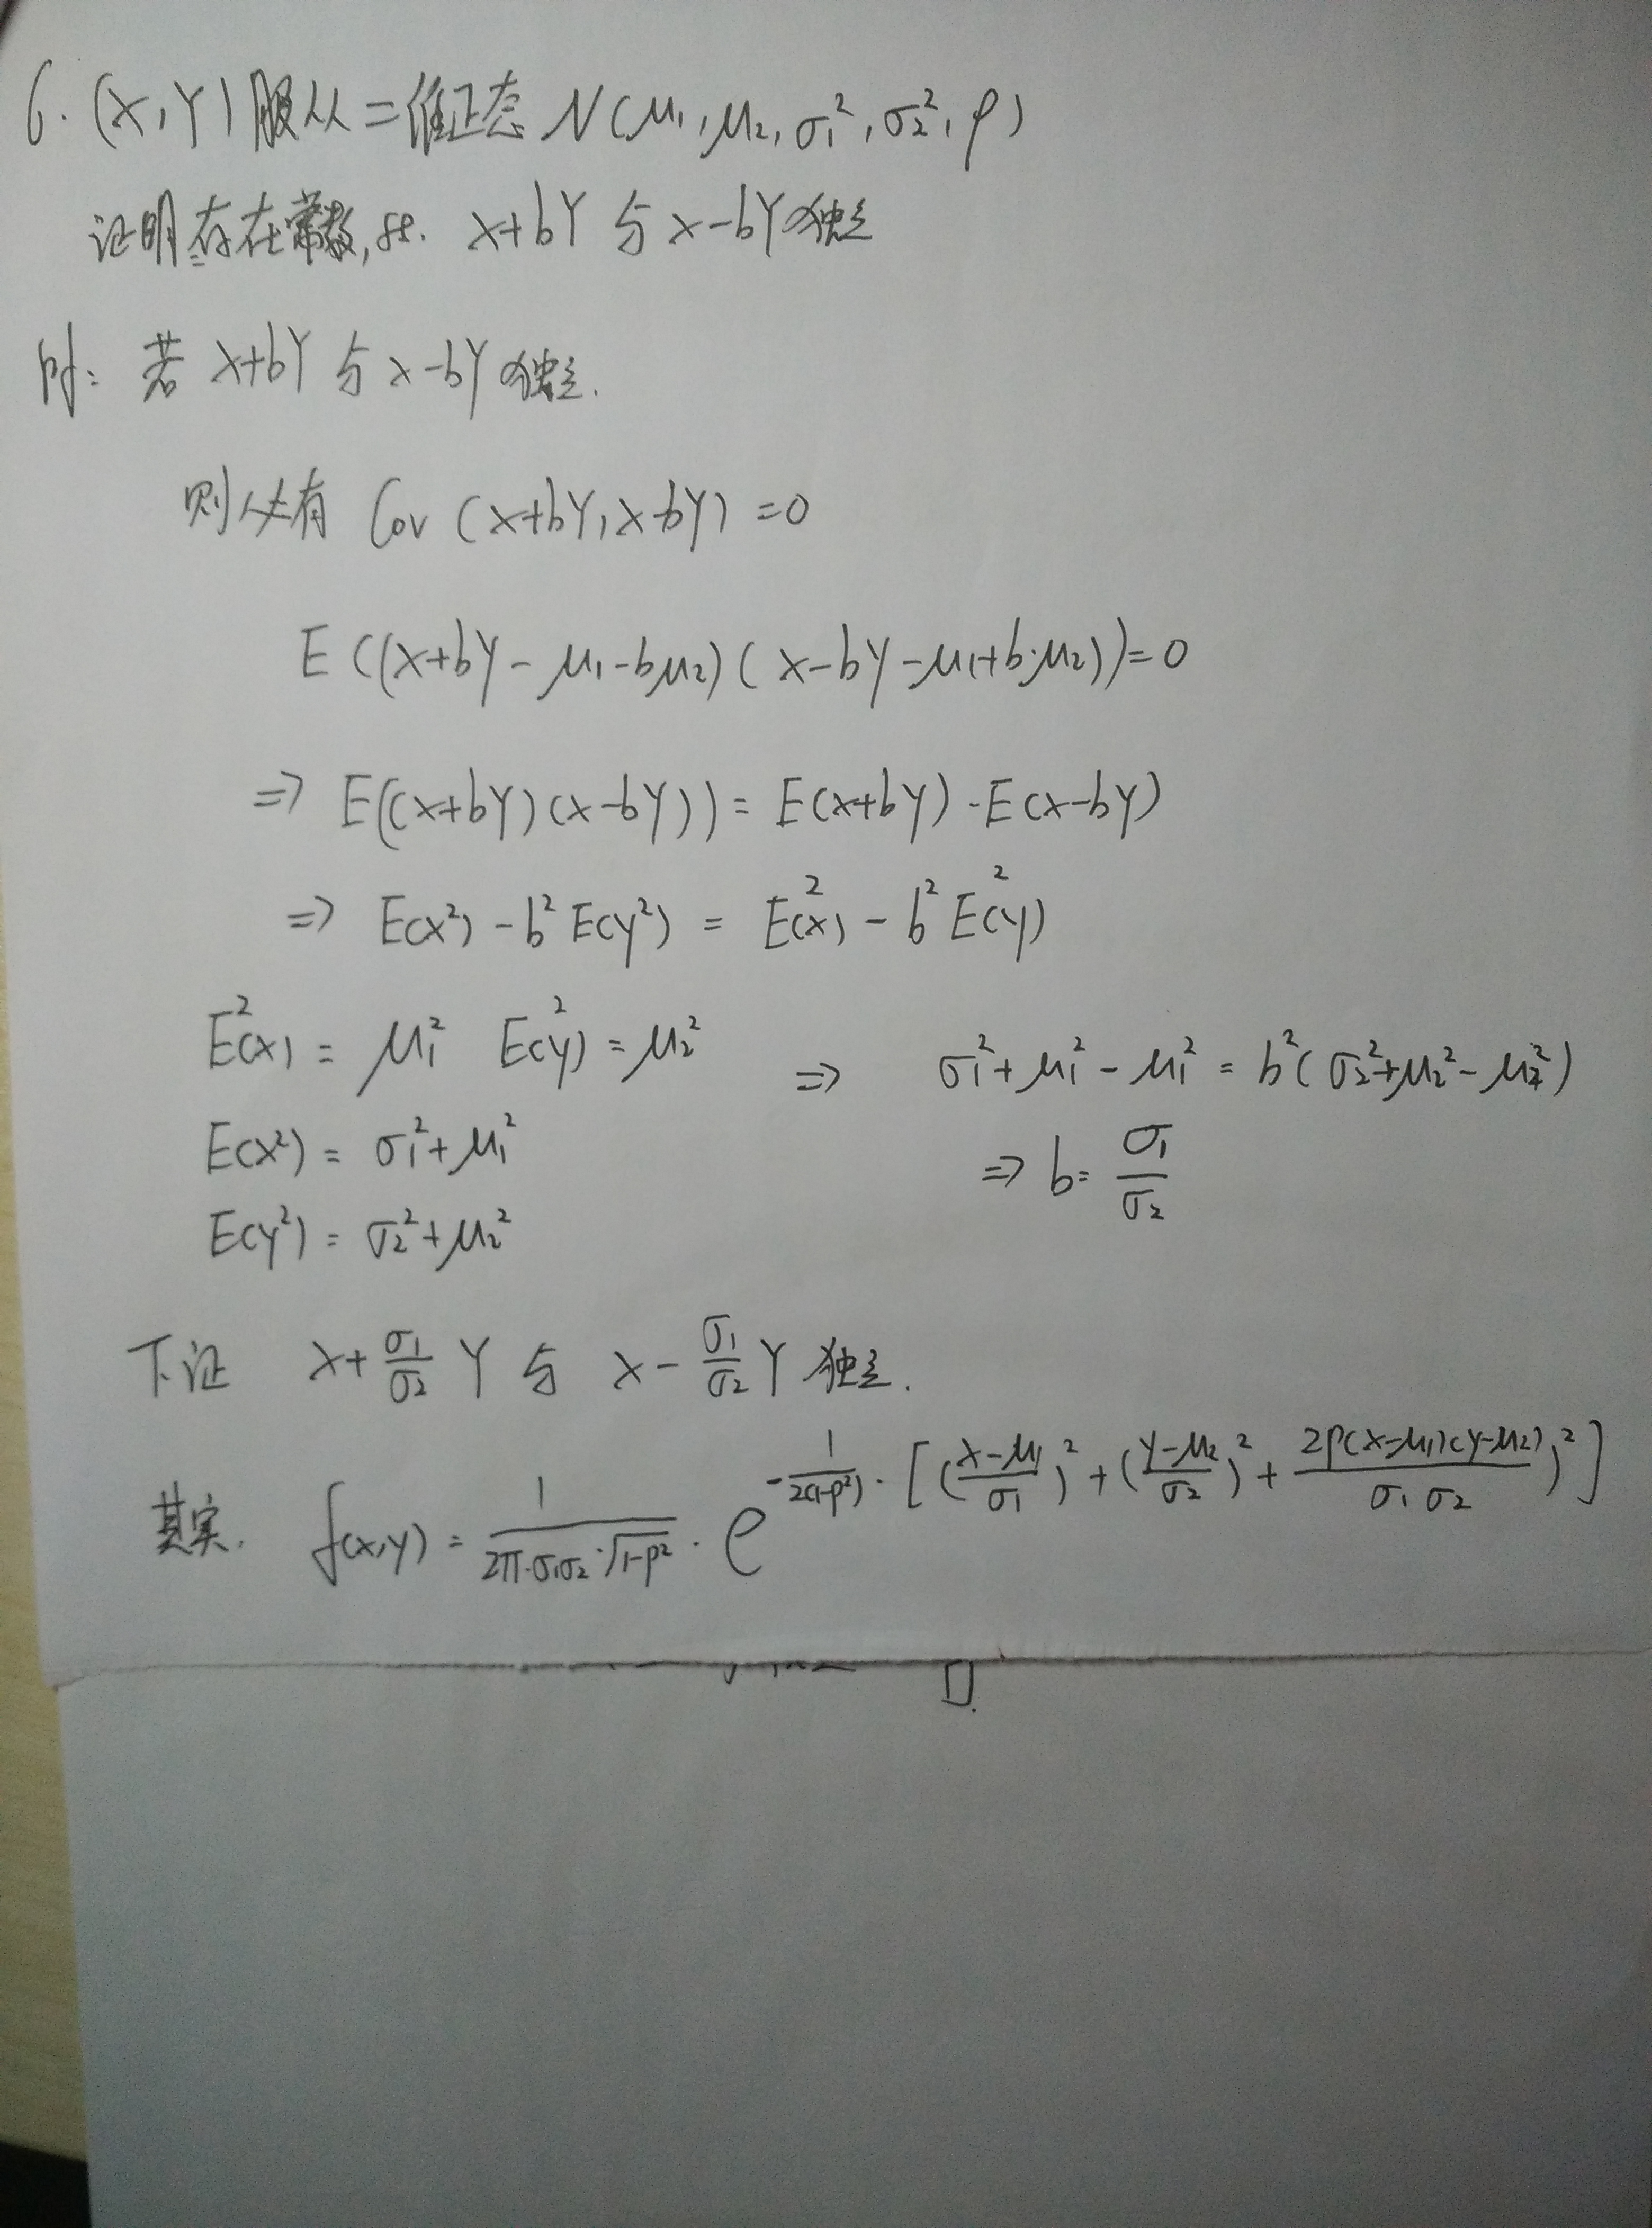 6. (X,Y)服从二维正态 N(μ₁,μ₂,σ₁²,σ₂²,ρ)
证明存在常数, st. X+bY 与 X-bY独立
pf: 若 X+bY 与 X-bY 独立.
则必有 Cov (X+bY,X-bY) =0
E ((X+bY-μ₁-bμ₂)( X-bY-μ₁+b·μ₂))=0
⇒ E((X+bY)(X-bY)) = E(X+bY)·E(X-bY)
⇒ E(X²) - b² E(Y²) = E²(X) - b² E²(Y)
E²(X) = μ₁² E²(Y) = μ₂² ⇒ σ₁²+μ₁²-μ₁² = b²(σ₂²+μ₂²-μ₂²)
E(X²) = σ₁²+μ₁² ⇒ b= σ₁/σ₂
E(Y²) = σ₂²+μ₂²
下证 X+ σ₁/σ₂ Y 与 X- σ₁/σ₂ Y 独立.
其实. f(x,y) = 1/(2π·σ₁σ₂·√(1-ρ²)) · e^{-1/(2(1-ρ²))·[((x-μ₁)/σ₁)²+((y-μ₂)/σ₂)²+(2ρ(x-μ₁)(y-μ₂)/(σ₁σ₂))²]}